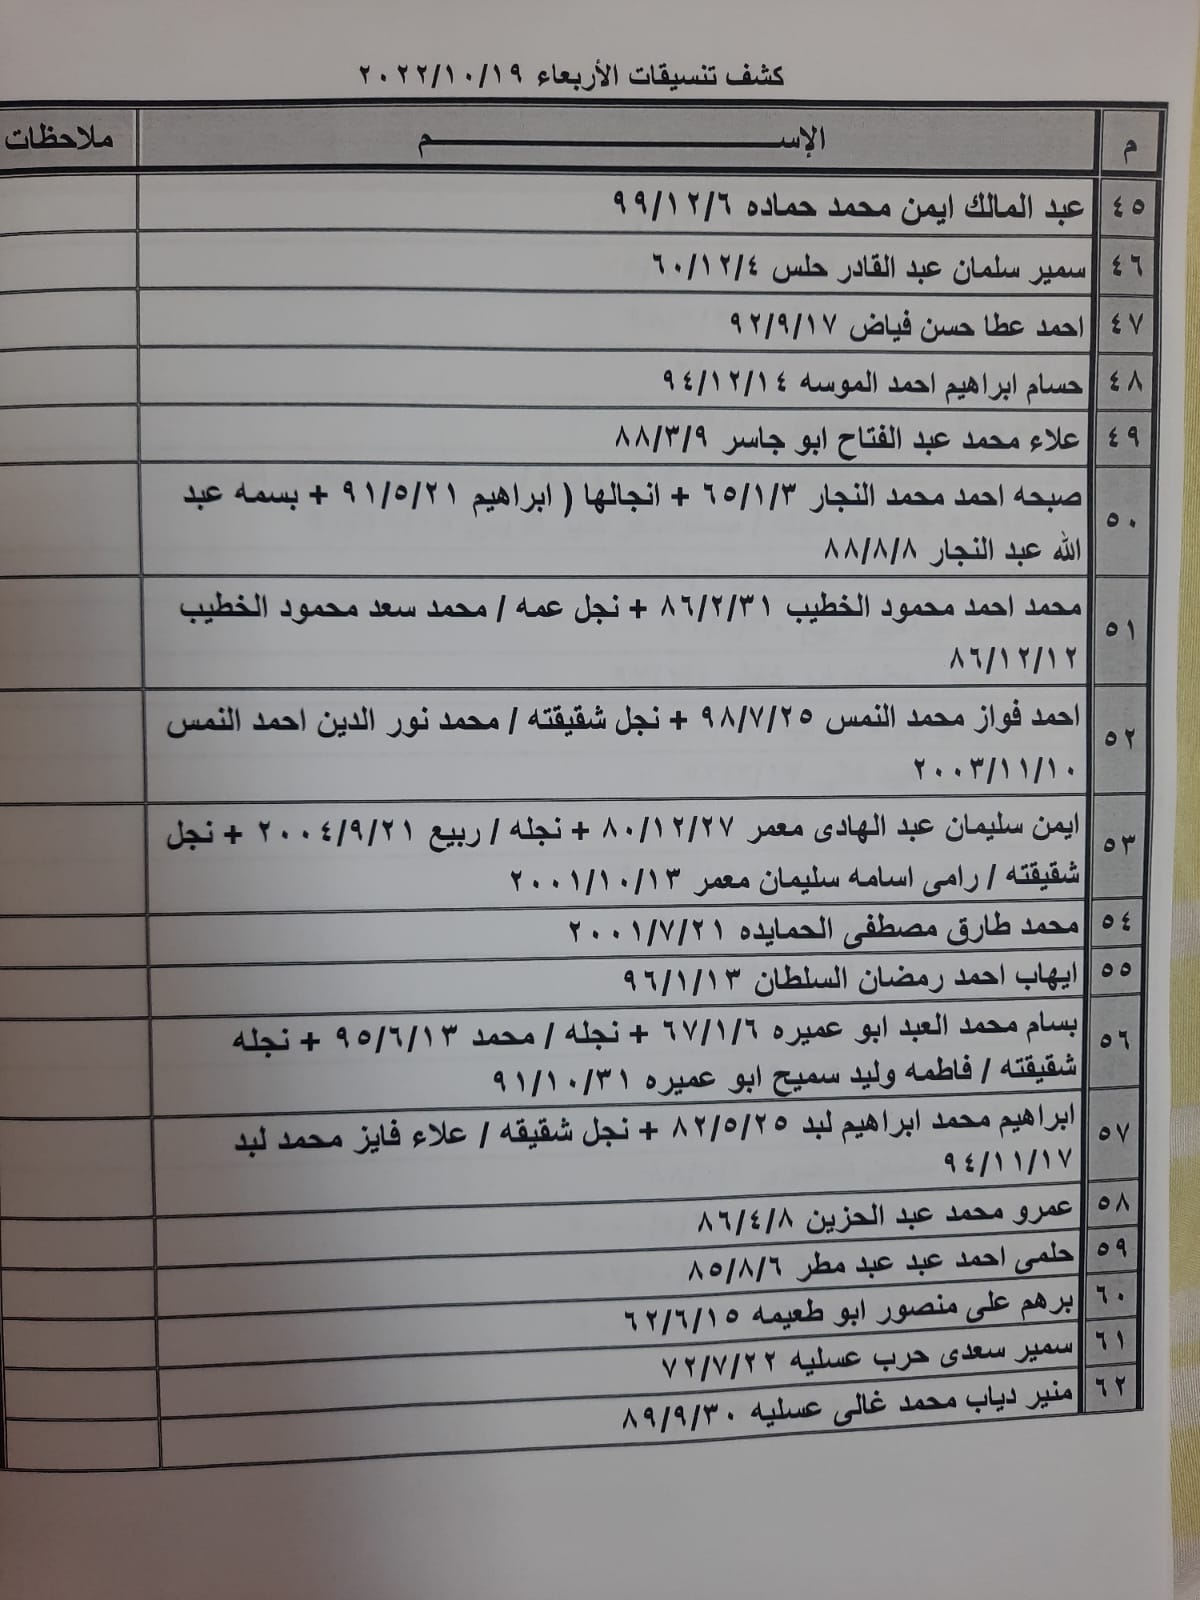 كشف تنسيقات الأربعاء ٢٠٢٢/١٠/١٩
م الإســـــــــــــــــــــــــــم ملاحظات
٤٥ عبد المالك ايمن محمد حماده ٩٩/١٢/٦
٤٦ سمير سلمان عبد القادر حلس ٦٠/١٢/٤
٤٧ احمد عطا حسن فياض ٩٢/٩/١٧
٤٨ حسام ابراهيم احمد الموسه ٩٤/١٢/١٤
٤٩ علاء محمد عبد الفتاح ابو جاسر ٨٨/٣/٩
٥٠ صبحه احمد محمد النجار ٦٥/١/٣ + انجالها ( ابراهيم ٩١/٥/٢١ + بسمه عبد
الله عبد النجار ٨٨/٨/٨
٥١ محمد احمد محمود الخطيب ٨٦/٢/٣١ + نجل عمه / محمد سعد محمود الخطيب
٨٦/١٢/١٢
٥٢ احمد فواز محمد النمس ٩٨/٧/٢٥ + نجل شقيقته / محمد نور الدين احمد النمس
٢٠٠٣/١١/١٠
٥٣ ايمن سليمان عبد الهادى معمر ٨٠/١٢/٢٧ + نجله / ربيع ٢٠٠٤/٩/٢١ + نجل
شقيقته / رامى اسامه سليمان معمر ٢٠٠١/١٠/١٣
٥٤ محمد طارق مصطفى الحمايده ٢٠٠١/٧/٢١
٥٥ ايهاب احمد رمضان السلطان ٩٦/١/١٣
٥٦ بسام محمد العبد ابو عميره ٦٧/١/٦ + نجله / محمد ٩٥/٦/١٣ + نجله
شقيقته / فاطمه وليد سميح ابو عميره ٩١/١٠/٣١
٥٧ ابراهيم محمد ابراهيم لبد ٨٢/٥/٢٥ + نجل شقيقه / علاء فايز محمد لبد
٩٤/١١/١٧
٥٨ عمرو محمد عبد الحزين ٨٦/٤/٨
٥٩ حلمى احمد عبد عبد مطر ٨٥/٨/٦
٦٠ برهم على منصور ابو طعيمه ٦٢/٦/١٥
٦١ سمير سعدى حرب عسليه ٧٢/٧/٢٢
٦٢ منير دياب محمد غالى عسليه ٨٩/٩/٣٠